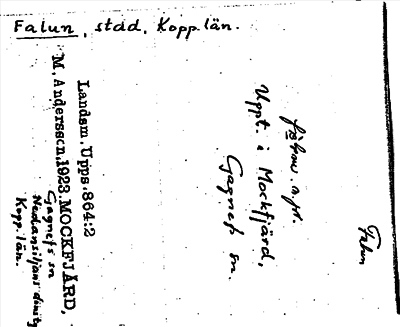 Falun, stad, Kopp.län.
fàlun. npr.
Uppt. i Mockfjärd,
Gagnefs sn.
Falun
Landsm. Upps.864:2
M. Andersson,1923.MOCKFJÄRD,
Gagnefs sn
Nedansiljans domsg
Kopp.län.